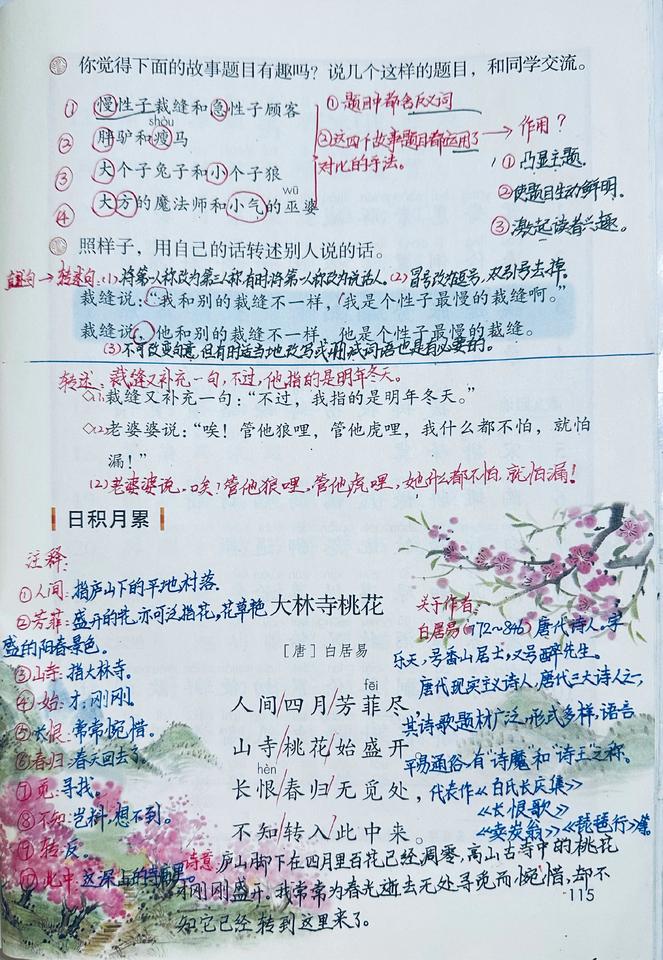 你觉得下面的故事题目有趣吗？说几个这样的题目，和同学交流。
① 慢性子裁缝和急性子顾客
① 题目中都含反义词
shòu
② 胖驴和瘦马
② 这四个故事题目都运用了
对比的手法。
→ 作用？
③ 大个子兔子和小个子狼
① 凸显主题.
wū
④ 大方的魔法师和小气的巫婆
② 使题目生动鲜明。
③ 激起读者兴趣。
照样子，用自己的话转述别人说的话。
直述句→转述句:(1)将第一人称改为第三人称,有时将第一人称改为说话人。(2)冒号改为逗号,双引号去掉。
裁缝说：“我和别的裁缝不一样，我是个性子最慢的裁缝啊。”
裁缝说，他和别的裁缝不一样，他是个性子最慢的裁缝。
(3)不可改变句意,但有时适当地改写或删减词语也是有必要的。
转述：裁缝又补充一句,不过,他指的是明年冬天。
(1)裁缝又补充一句：“不过，我指的是明年冬天。”
(2)老婆婆说：“唉！管他狼哩，管他虎哩，我什么都不怕，就怕
漏！”
(2)老婆婆说,唉!管他狼哩,管他虎哩,她什么都不怕,就怕漏!
日积月累
注释：
①人间:指庐山下的平地村落.
②芳菲:盛开的花,亦可泛指花,花草艳
盛的阳春景色。
③山寺:指大林寺。
④始:才,刚刚。
⑤长恨:常常惋惜。
⑥春归:春天回去了。
⑦觅:寻找。
⑧不知:岂料,想不到。
⑨转:反。
⑩此中:这深山的寺庙里。
大林寺桃花
［唐］白居易
fēi
人间/四月/芳菲尽，
山寺/桃花/始盛开。
hèn
长恨/春归/无觅处，
不知/转入/此中来。
关于作者:
白居易(772~846)唐代诗人,字
乐天,号香山居士,又号醉吟先生。
唐代现实主义诗人,唐代三大诗人之一,
其诗歌题材广泛,形式多样,语言
平易通俗,有“诗魔”和“诗王”之称。
代表作《白氏长庆集》
《长恨歌》
《卖炭翁》《琵琶行》等。
诗意 庐山脚下在四月里百花已经凋零,高山古寺中的桃花
才刚刚盛开。我常常为春光逝去无处寻觅而惋惜,却不
知它已经转到这里来了。
115